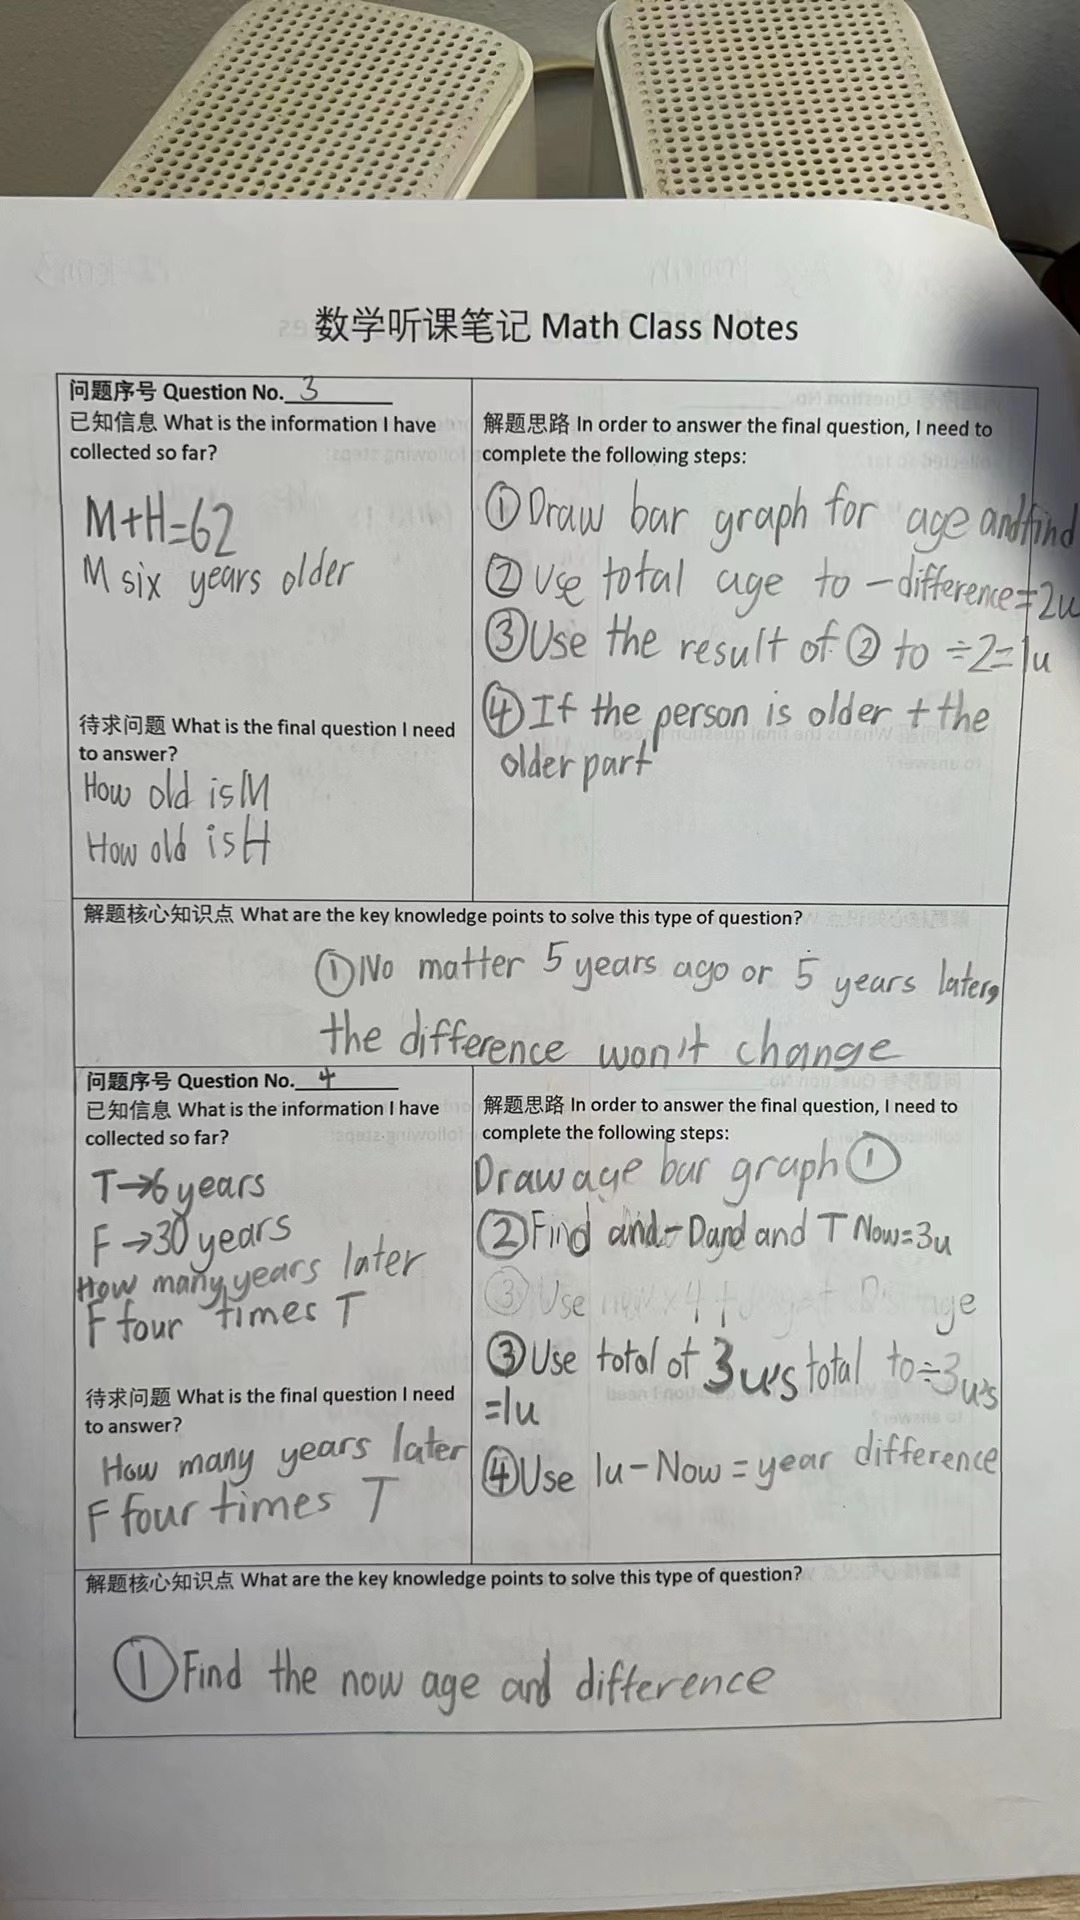 数学听课笔记 Math Class Notes
问题序号 Question No. 3
已知信息 What is the information I have
collected so far?
M+H=62
M six years older
待求问题 What is the final question I need
to answer?
How old is M
How old is H
解题思路 In order to answer the final question, I need to
complete the following steps:
①Draw bar graph for age and find
②Use total age to - difference=2u
③Use the result of ② to ÷2=1u
④If the person is older + the
older part
解题核心知识点 What are the key knowledge points to solve this type of question?
①No matter 5 years ago or 5 years later,
the difference won't change
问题序号 Question No. 4
已知信息 What is the information I have
collected so far?
T→6 years
F→30 years
How many years later
F four times T
待求问题 What is the final question I need
to answer?
How many years later
F four times T
解题思路 In order to answer the final question, I need to
complete the following steps:
Draw age bar graph ①
②Find and - Dand and T Now=3u
③ Use
age
③Use total of 3u's total to ÷3u's
=1u
④Use 1u-Now=year difference
解题核心知识点 What are the key knowledge points to solve this type of question?
①Find the now age and difference